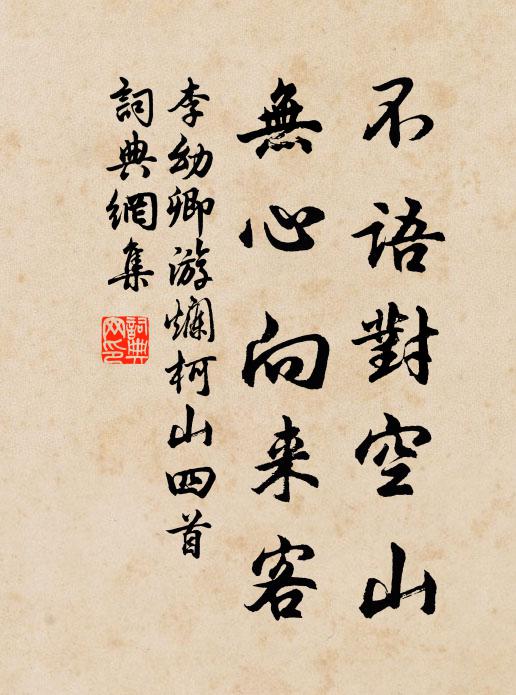 不語對空山
無心向来客
李幼卿游爛柯山四首
詞典網集
詞典網印